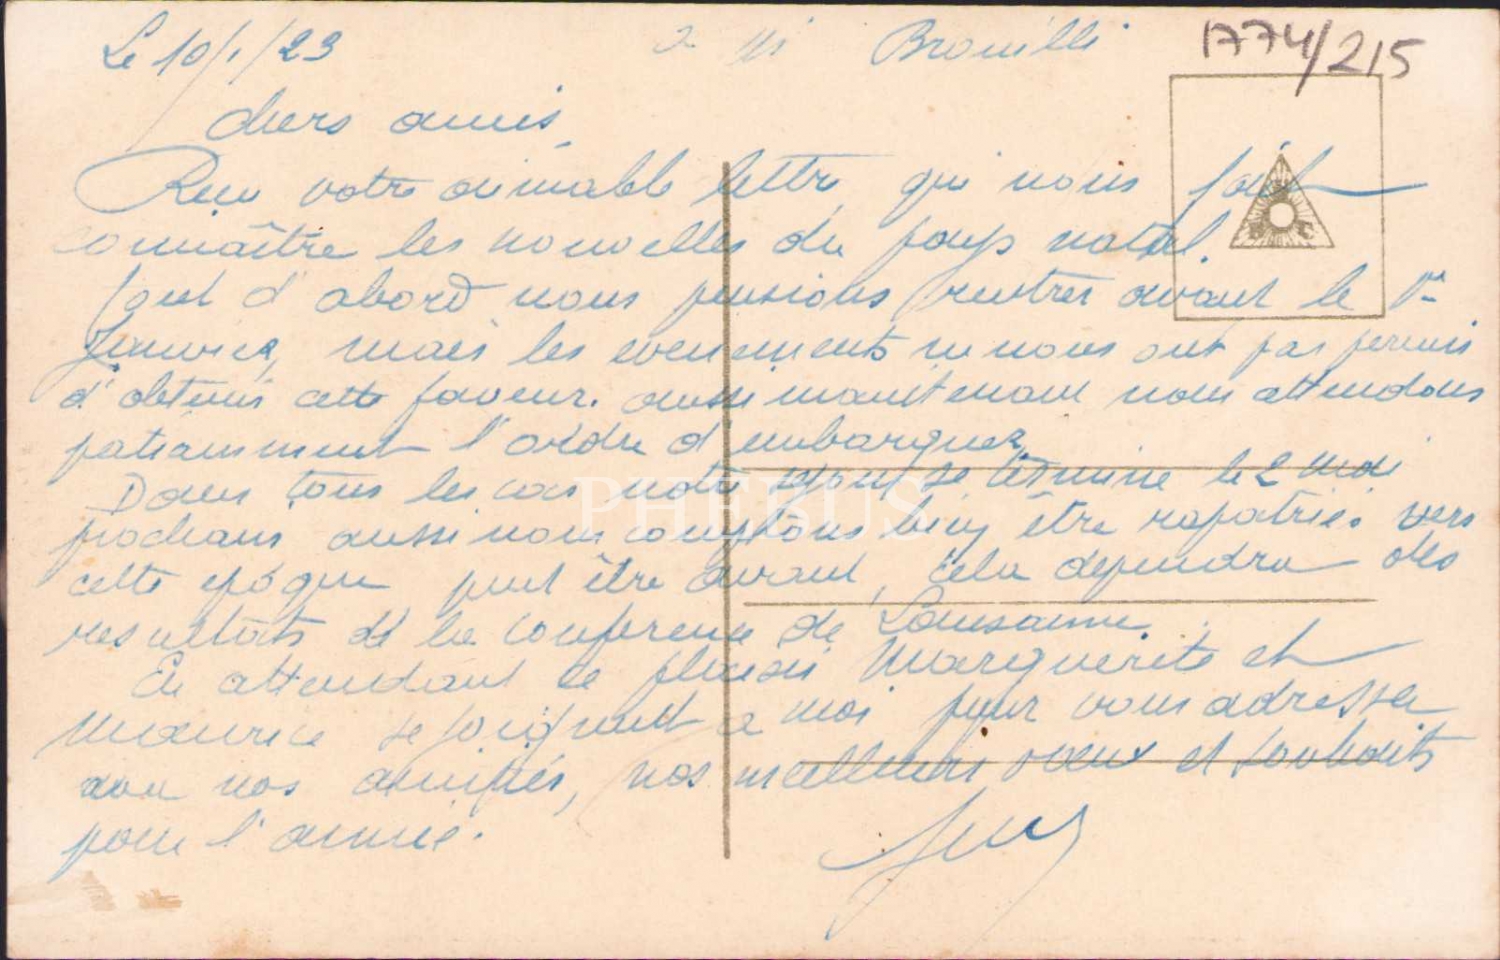 Le 10/1/23
Brouilli
1774/215
Chers amis,
Reçu votre aimable lettre, qui nous fait
connaître les nouvelles du pays natal.
Tout d'abord nous pensions rentrer avant le 1er
Janvier, mais les evenements ne nous ont pas permis
d'obtenir cette faveur. aussi maintenant nous attendons
patiamment l'ordre d'embarquer.
Dans tous les cas notre sejour se termine le 2 Mai
prochain aussi nous comptons bien être rapatriés vers
cette epoque peut être avant, cela dependra des
resultats de la Conference de Lausanne.
En attendant ce plaisir Marguerite et
Maurice se joignent a moi pour vous adresser
avec nos amitiés, nos meilleurs voeux et souhaits
pour l'année.
PHEBUS